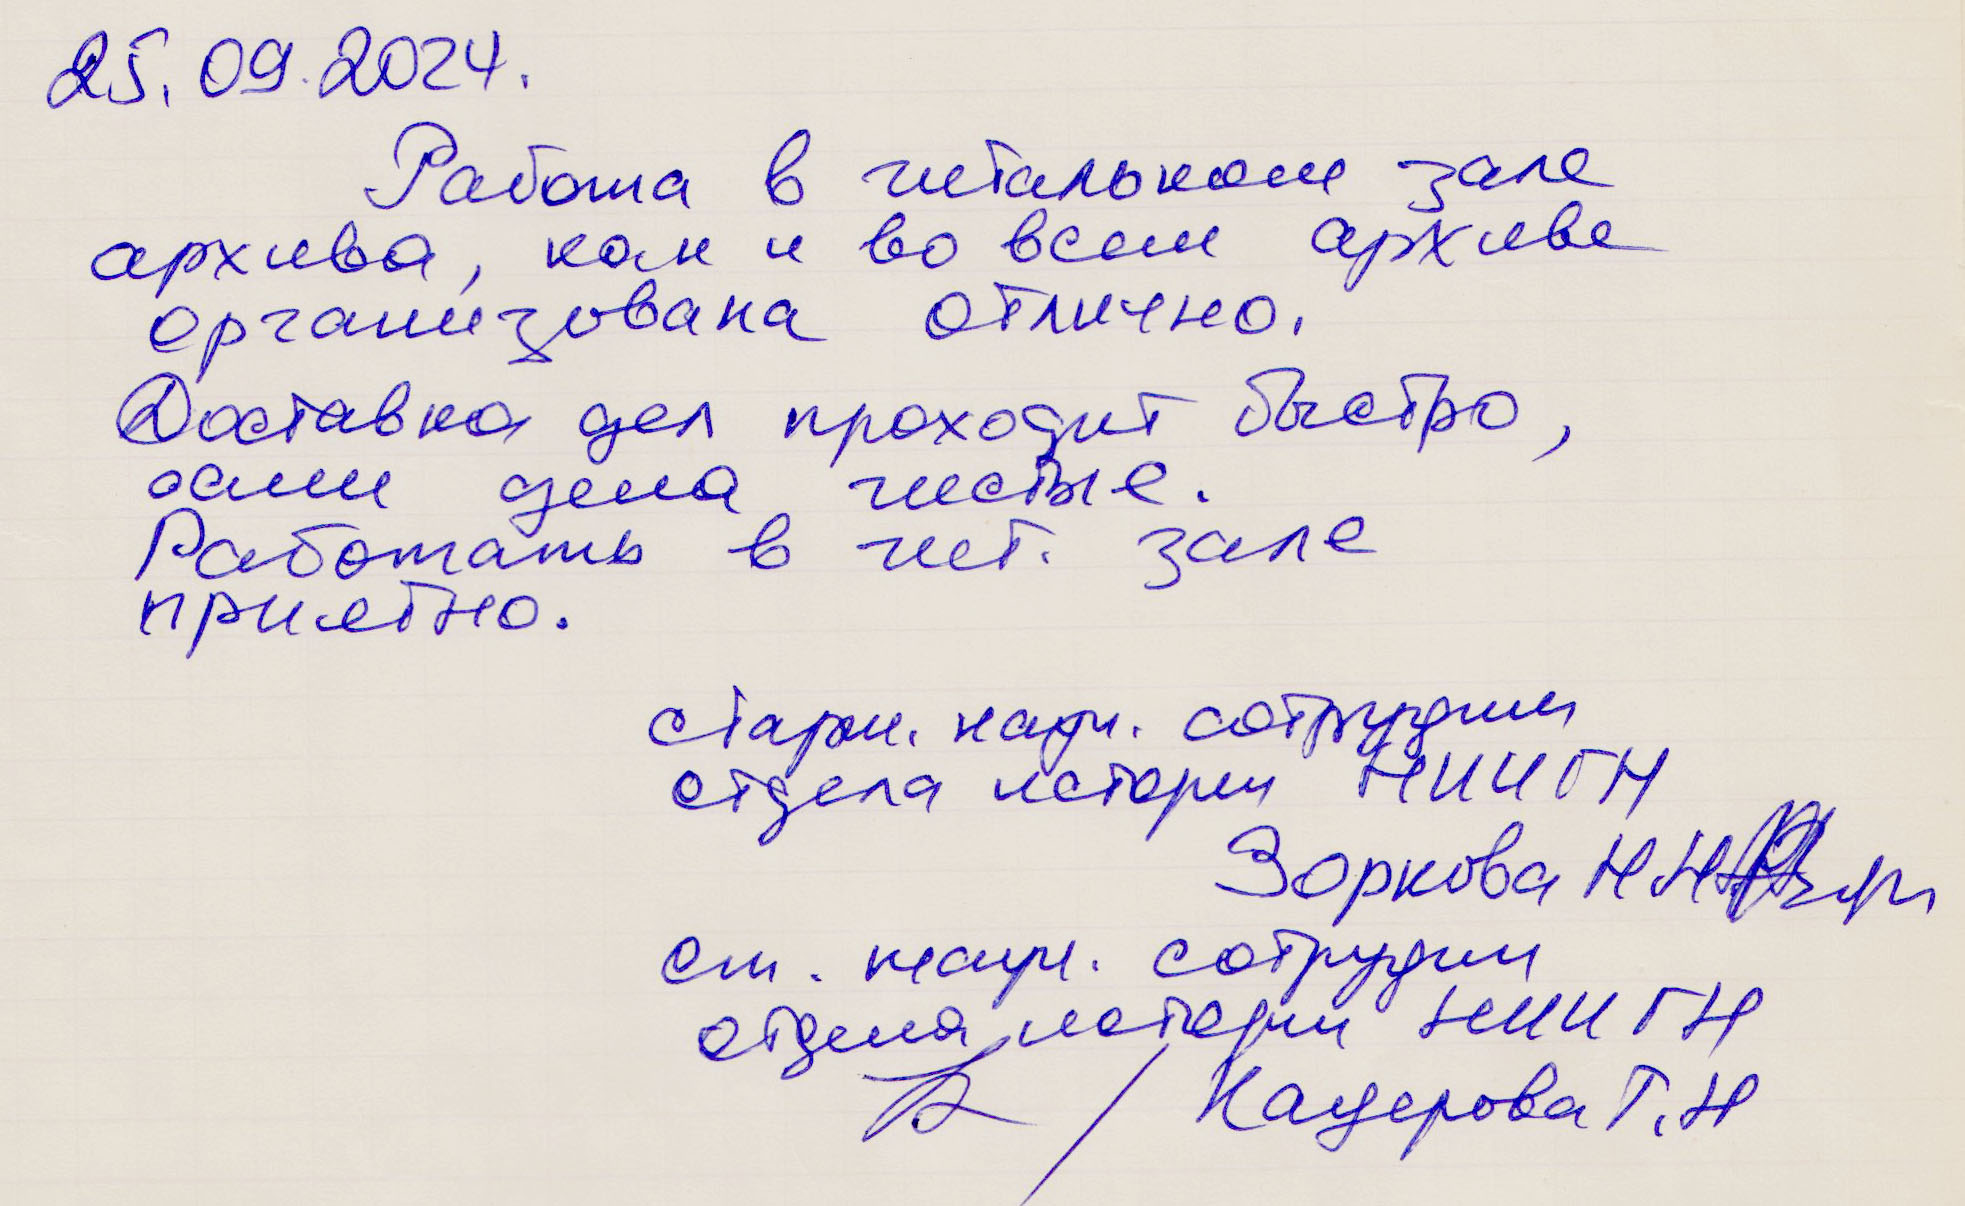 25.09.2024.
Работа в читальном зале
архива, как и во всем архиве
организована отлично.
Доставка дел проходит быстро,
сами дела чистые.
Работать в чит. зале
приятно.
старш. науч. сотрудник
отдела истории НИИГН
Зоркова Н Н
ст. научн. сотрудник
отдела истории НИИГН
/ Кадерова Т.Н